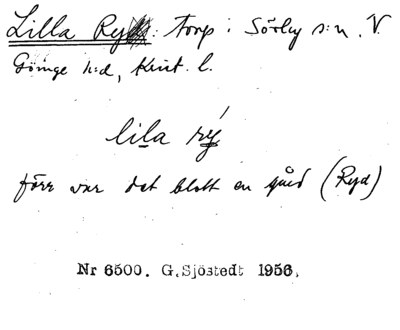 Lilla Ry: torp i Sörby s:n. V.
Göinge h:d, Krist. l.
lila rý
förr var det blott en gård (Ryd)
Nr 6500. G.Sjöstedt 1956.